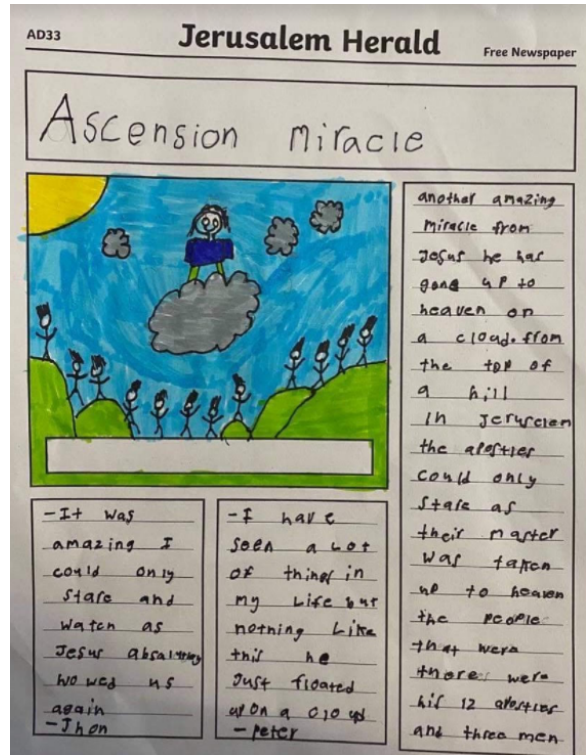 AD33
Jerusalem Herald
Free Newspaper
Ascension miracle
another amazing
miracle from
Jesus he has
gone up to
heaven on
a cloud. from
the top of
a hill
in Jeruselem
the apostles
could only
Stare as
their master
was taken
up to heaven
the people
that were
there were
his 12 apostles
and three men
-It was
amazing I
could only
Stare and
watch as
Jesus absalutley
wowed us
again
-Jhon
-I have
seen a Lot
of things in
my Life but
nothing Like
this he
Just floated
up on a cloud
-peter